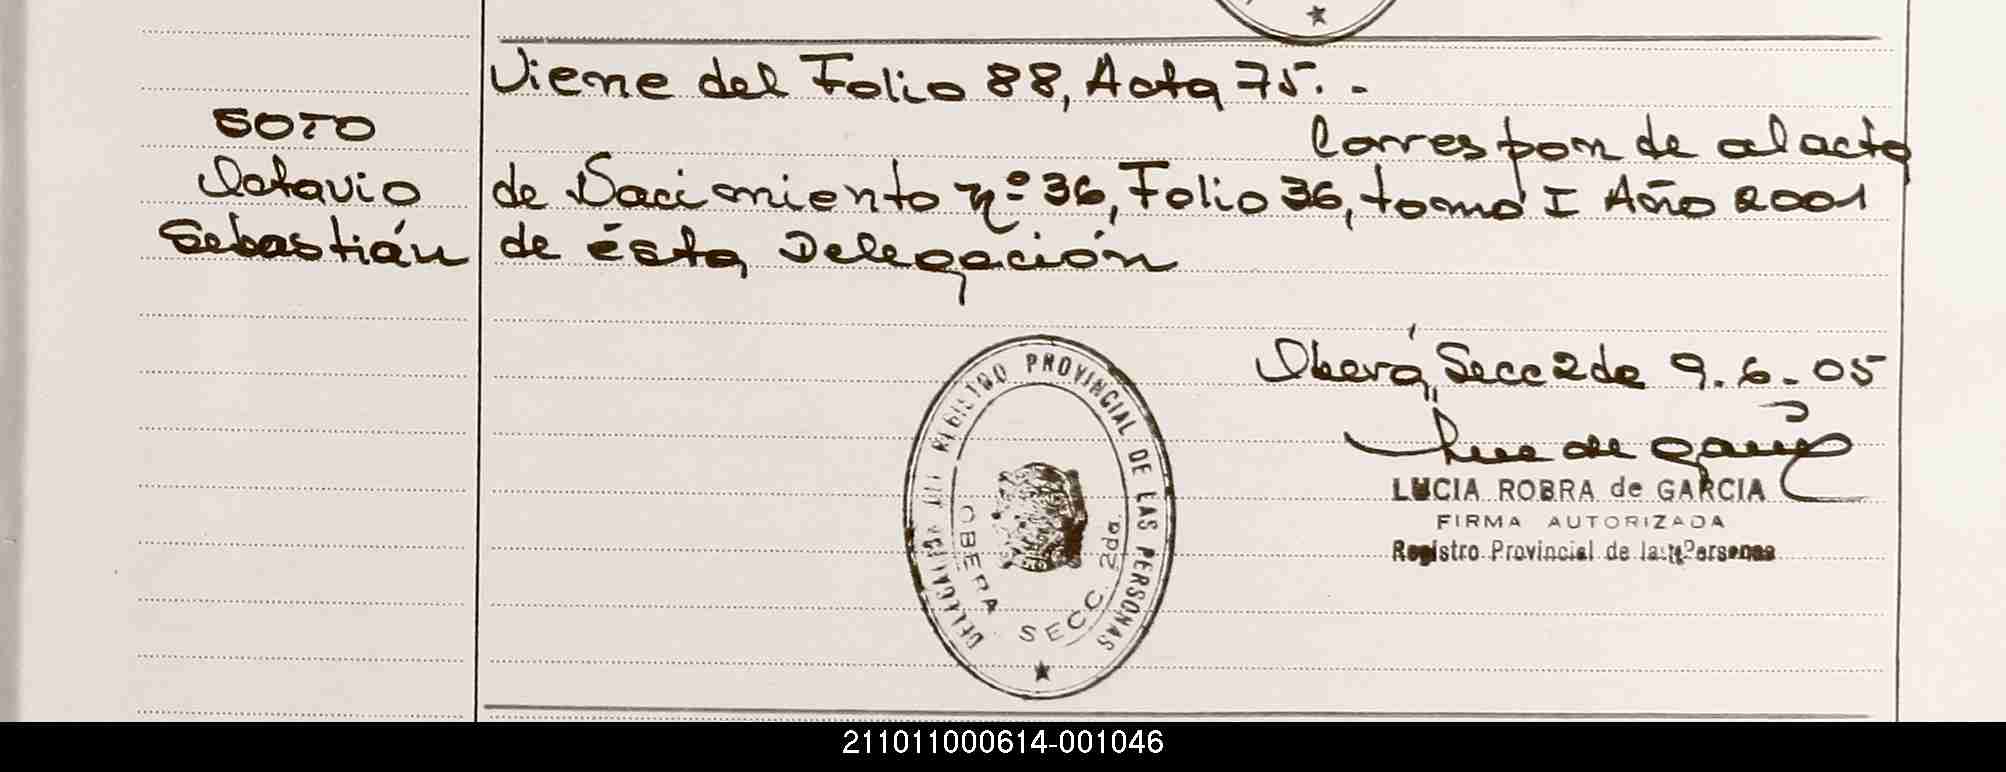 Viene del Folio 88, Acta 75. -
SOTO
Octavio
Sebastián
Corresponde al acta
de Nacimiento nº 36, Folio 36, tomo I Año 2001
de ésta Delegación
Oberá, Secc 2da 9.6.05
LUCIA ROBRA de GARCIA
FIRMA AUTORIZADA
Registro Provincial de las Personas
DELEGACION DEL REGISTRO PROVINCIAL DE LAS PERSONAS
OBERA SECC. 2da.
211011000614-001046